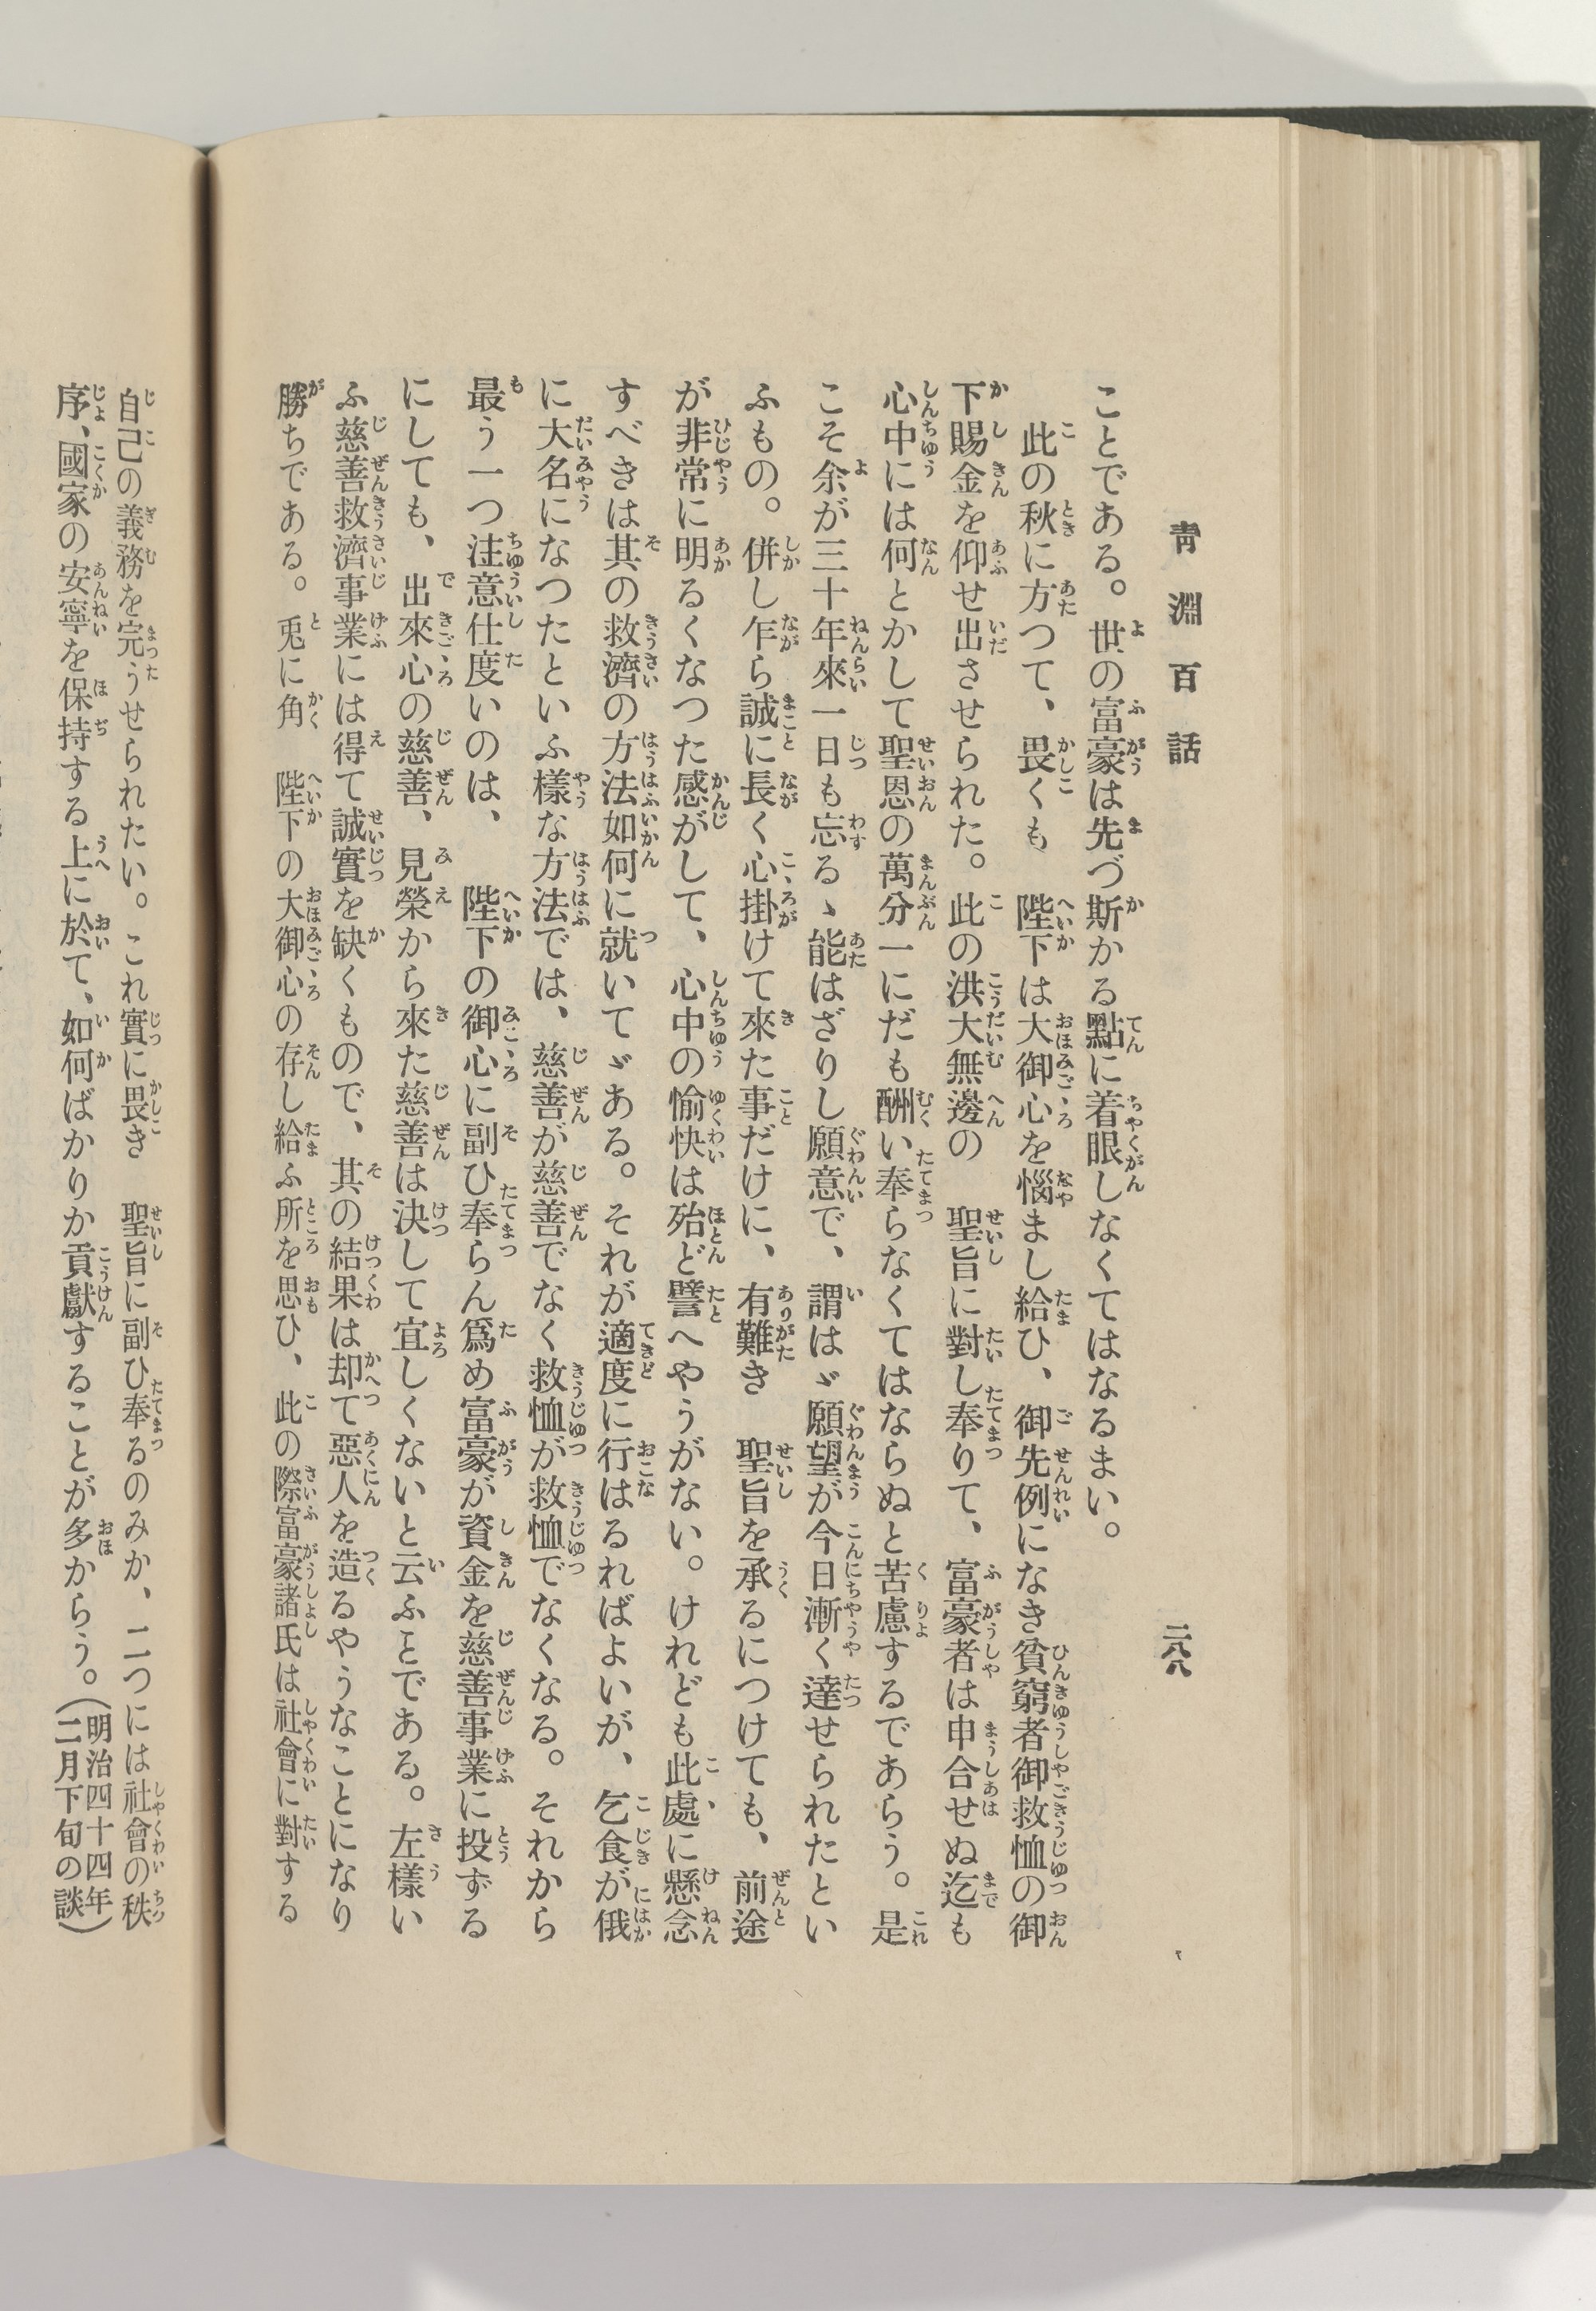 靑淵百話
二八八
ことである。世の富豪は先づ斯かる點に着眼しなくてはなるまい。
此の秋に方つて、畏くも　陛下は大御心を惱まし給ひ、御先例になき貧窮者御救恤の御
下賜金を仰せ出させられた。此の洪大無邊の　聖旨に對し奉りて、富豪者は申合せぬ迄も
心中には何とかして聖恩の萬分一にだも酬い奉らなくてはならぬと苦慮するであらう。是
こそ余が三十年來一日も忘るゝ能はざりし願意で、謂はゞ願望が今日漸く達せられたとい
ふもの。併し乍ら誠に長く心掛けて來た事だけに、有難き　聖旨を承るにつけても、前途
が非常に明るくなつた感がして、心中の愉快は殆ど譬へやうがない。けれども此處に懸念
すべきは其の救濟の方法如何に就いてゞある。それが適度に行はるればよいが、乞食が俄
に大名になつたといふ樣な方法では、慈善が慈善でなく救恤が救恤でなくなる。それから
最う一つ注意仕度いのは、　陛下の御心に副ひ奉らん爲め富豪が資金を慈善事業に投ずる
にしても、出來心の慈善、見榮から來た慈善は決して宜しくないと云ふとである。左樣い
ふ慈善救濟事業には得て誠實を缺くもので、其の結果は却て惡人を造るやうなことになり
勝ちである。兎に角　陛下の大御心の存し給ふ所を思ひ、此の際富豪諸氏は社會に對する
自己の義務を完うせられたい。これ實に畏き　聖旨に副ひ奉るのみか、二つには社會の秩
序、國家の安寧を保持する上に於て、如何ばかりか貢獻することが多からう。（明治四十四年
二月下旬の談）